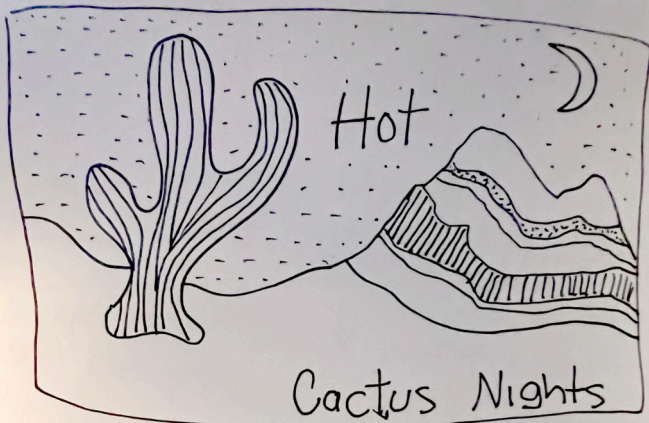 Hot
Cactus Nights